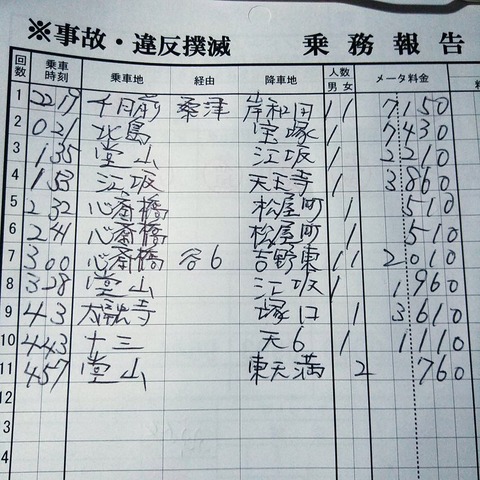 ※事故・違反撲滅 乗務報告
回数 乗車時刻 乗車地 経由 降車地 人数 男 女 メータ料金
1 22 19 千日前 桑津 岸和田 1 1 7150
2 0 21 北島 宝塚 1 7430
3 1 35 堂山 江坂 1 2210
4 1 53 江坂 天王寺 1 3860
5 2 32 心斎橋 松屋町 1 510
6 2 41 心斎橋 松屋町 1 510
7 3 00 心斎橋 谷6 吉野東 1 1 2010
8 3 28 堂山 江坂 1 1960
9 4 3 太融寺 塚口 1 3610
10 4 43 十三 天6 1 1110
11 4 57 堂山 東天満 2 760
2
3
4